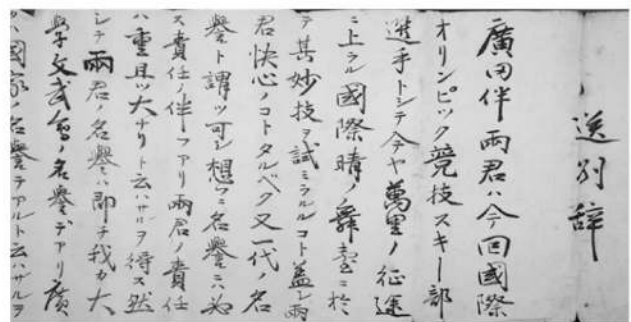 送別辞
廣田伴両君ハ今回國際
オリンピック競技スキー部
選手トシテ今ヤ萬里ノ征途
ニ上ラル國際晴ノ舞臺ニ於
テ其妙技ヲ試ミラルルコト蓋シ両
君快心ノコトタルベク又一代ノ名
譽ト謂ツ可シ想フニ名譽ニハ必
ス責任ノ伴フアリ両君ノ責任
ハ重且ツ大ナリト云ハサルヲ得ス然
シテ両君ノ名譽ハ即チ我カ大
學文武會ノ名譽デアリ廣
ハ國家ノ名譽テアルト云ハサルヲ